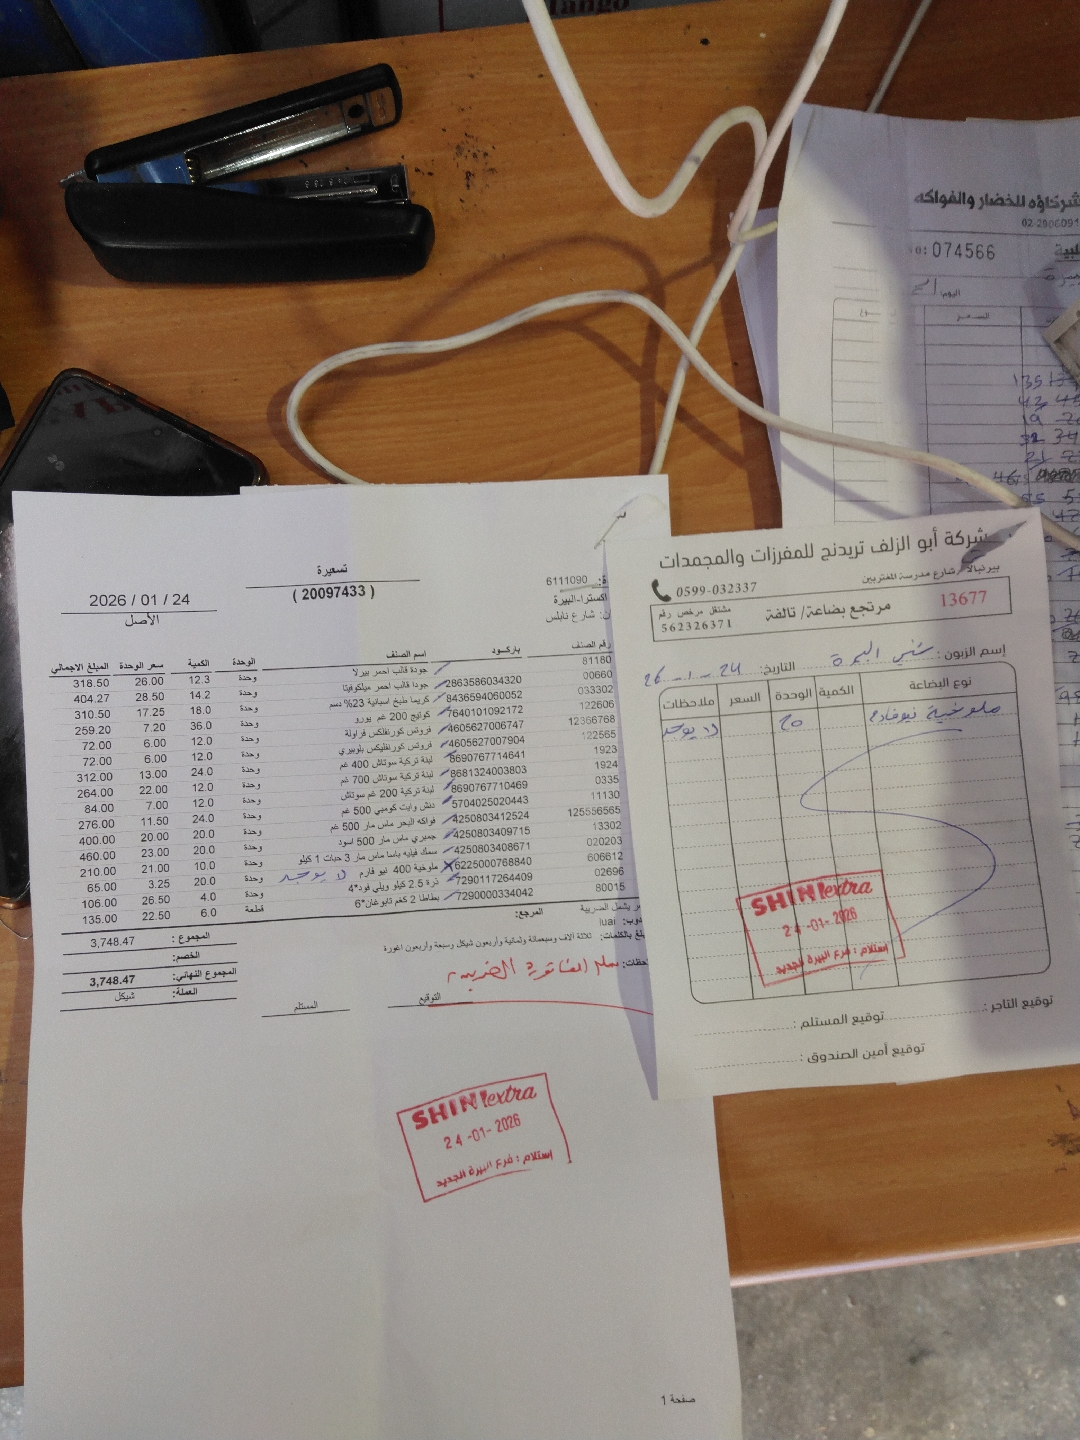 Tango
شركاؤه للخضار والفواكه
02-290609
074566
اليوم:
السعر
تسعيرة
( 20097433 )
2026 / 01 / 24
الأصل
6111090
اكسترا-البيرة
شارع نابلس
رقم الصنف باركود اسم الصنف الوحدة الكمية سعر الوحدة المبلغ الاجمالي
81180 جودة قالب احمر بيرلا وحدة 12.3 26.00 318.50
00660 2863586034320 جودا قالب احمر ميلكوفيتا وحدة 14.2 28.50 404.27
033302 8436594060052 كريما طبخ اسبانية 23% دسم وحدة 18.0 17.25 310.50
122606 7640101092172 كوتيج 200 غم يورو وحدة 36.0 7.20 259.20
12356768 4605627006747 فروتس كورنفلكس فراولة وحدة 12.0 6.00 72.00
122565 4605627007904 فروتس كورنفليكس بلوبيري وحدة 12.0 6.00 72.00
1923 8690767714641 لبنة تركية سوتاش 400 غم وحدة 24.0 13.00 312.00
1924 8681324003803 لبنة تركية سوتاش 700 غم وحدة 12.0 22.00 264.00
0335 8690767710469 لبنة تركية 200 غم سوتاش وحدة 12.0 7.00 84.00
11130 5704025020443 دنش وايت كومبي 500 غم وحدة 24.0 11.50 276.00
125556565 4250803412524 فواكه البحر ماس مار 500 غم وحدة 20.0 20.00 400.00
13302 4250803409715 جمبري ماس مار 500 اسود وحدة 20.0 23.00 460.00
020203 4250803408671 سمك فيليه باسا ماس مار 3 حبات 1 كيلو وحدة 10.0 21.00 210.00
606612 6225000768840 ملوخية 400 نيو فارم لا يوجد وحدة 20.0 3.25 65.00
02696 7290117264409 ذرة 2.5 كيلو ويلي فود*4 وحدة 4.0 26.50 106.00
80015 7290000334042 بطاطا 2 كغم تابوغان*6 قطعة 6.0 22.50 135.00
يشمل الضريبة المرجع: المجموع : 3,748.47
luai الخصم:
بالكلمات: ثلاثة آلاف وسبعمائة وثمانية وأربعون شيكل وسبعة وأربعون اغورة
المجموع النهائي: 3,748.47
العملة: شيكل
التوقيع
المستلم
SHINI extra
24-01-2026
إستلام : فرع البيرة الجديد
صفحة 1
شركة أبو الزلف تريدنج للمفرزات والمجمدات
بيرنبالا / شارع مدرسة المغتربين
0599-032337
13677
مرتجع بضاعة/ تالفة
مشتغل مرخص رقم
562326371
إسم الزبون : شني البيرة التاريخ: 24-1-26
نوع البضاعة الكمية الوحدة السعر ملاحظات
ملوخية نيوفارم 20 لا يوجد
SHINI extra
24-01-2026
إستلام : فرع البيرة الجديد
توقيع التاجر :
توقيع المستلم :
توقيع أمين الصندوق :